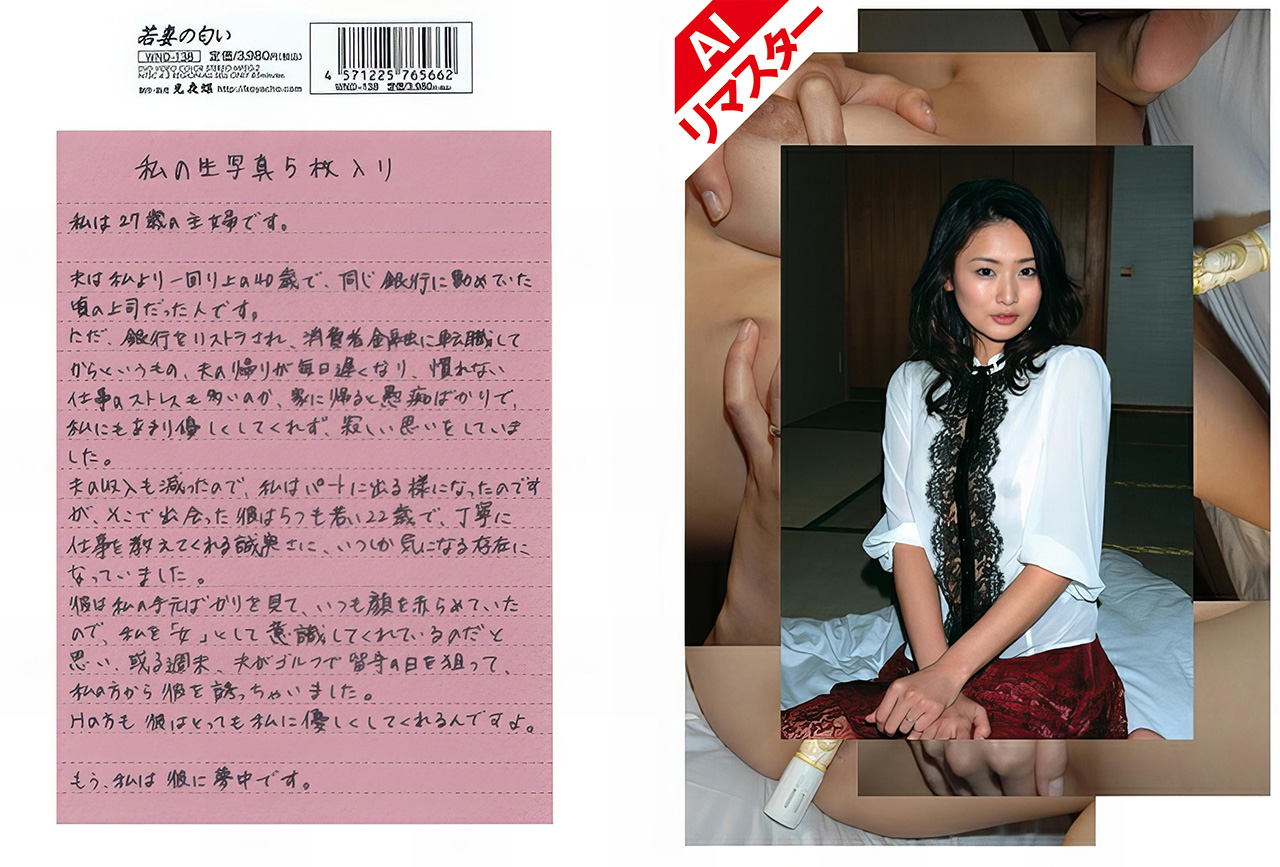 若妻の匂い
WND-138 定価/3,980円(税込)
http://koyacho.com
4 571225 765662
WND-138 定価/3,980円(税込)
私の生写真5枚入り
私は27歳の主婦です。
夫は私より一回り上の40歳で、同じ銀行に勤めていた
頃の上司だった人です。
ただ、銀行をリストラされ、消費者金融に転職して
からというもの、夫の帰りが毎日遅くなり、慣れない
仕事のストレスも多いのか、家に帰ると愚痴ばかりで、
私にもあまり優しくしてくれず、寂しい思いをしていま
した。
夫の収入も減ったので、私はパートに出る様になったのです
が、そこで出会った彼は5つも若い22歳で、丁寧に
仕事を教えてくれる誠実さに、いつしか気になる存在に
なっていました。
彼は私の手元ばかりを見て、いつも顔を赤らめていた
ので、私を「女」として意識してくれているのだと
思い、或る週末、夫がゴルフで留守の日を狙って、
私の方から彼を誘っちゃいました。
Hの方も彼はとっても私に優しくしてくれるんですよ。
もう、私は彼に夢中です。
AI
リマスター